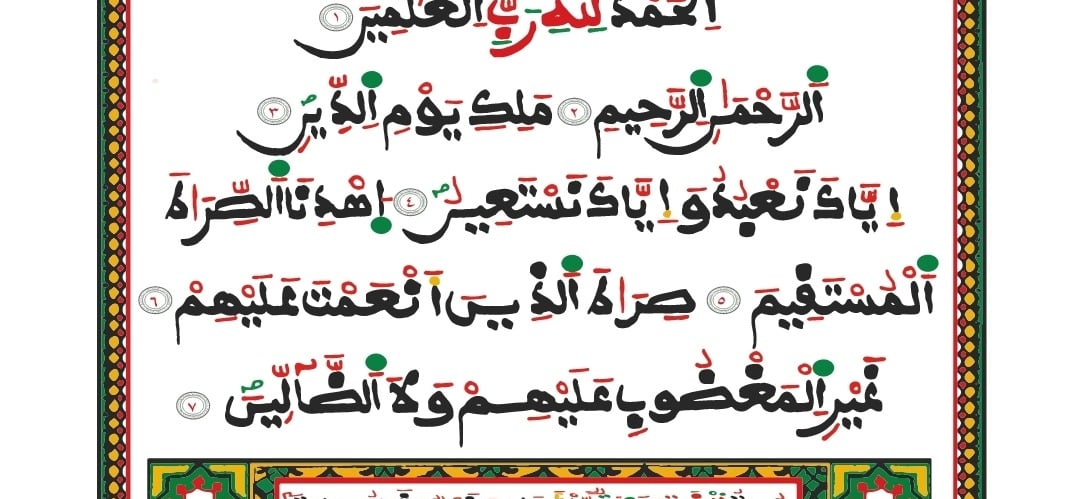 اَلْحَمْدُ لِلهِ رَبِّ اِلْعَٰلَمِينَ ١
اَلرَّحْمَٰنِ اِلرَّحِيمِ ٢ مَلِكِ يَوْمِ اِلدِّينِ ٣
إِيَّاكَ نَعْبُدُ وَإِيَّاكَ نَسْتَعِينُ ٤ اِهْدِنَا اَلصِّرَٰطَ
اَلْمُسْتَقِيمَ ٥ صِرَٰطَ اَلذِينَ أَنْعَمْتَ عَلَيْهِمْ ٦
غَيْرِ اِلْمَغْضُوبِ عَلَيْهِمْ وَلَا اَلضَّآلِّينَ ٧